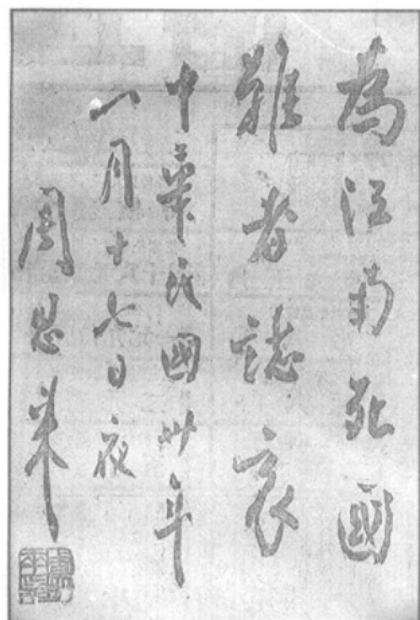 為江南死國
難者誌哀
中華民國卅年
一月十七日夜
周恩来